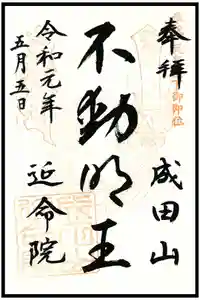 奉拝
成田山
不動明王
令和元年
五月五日
近命院